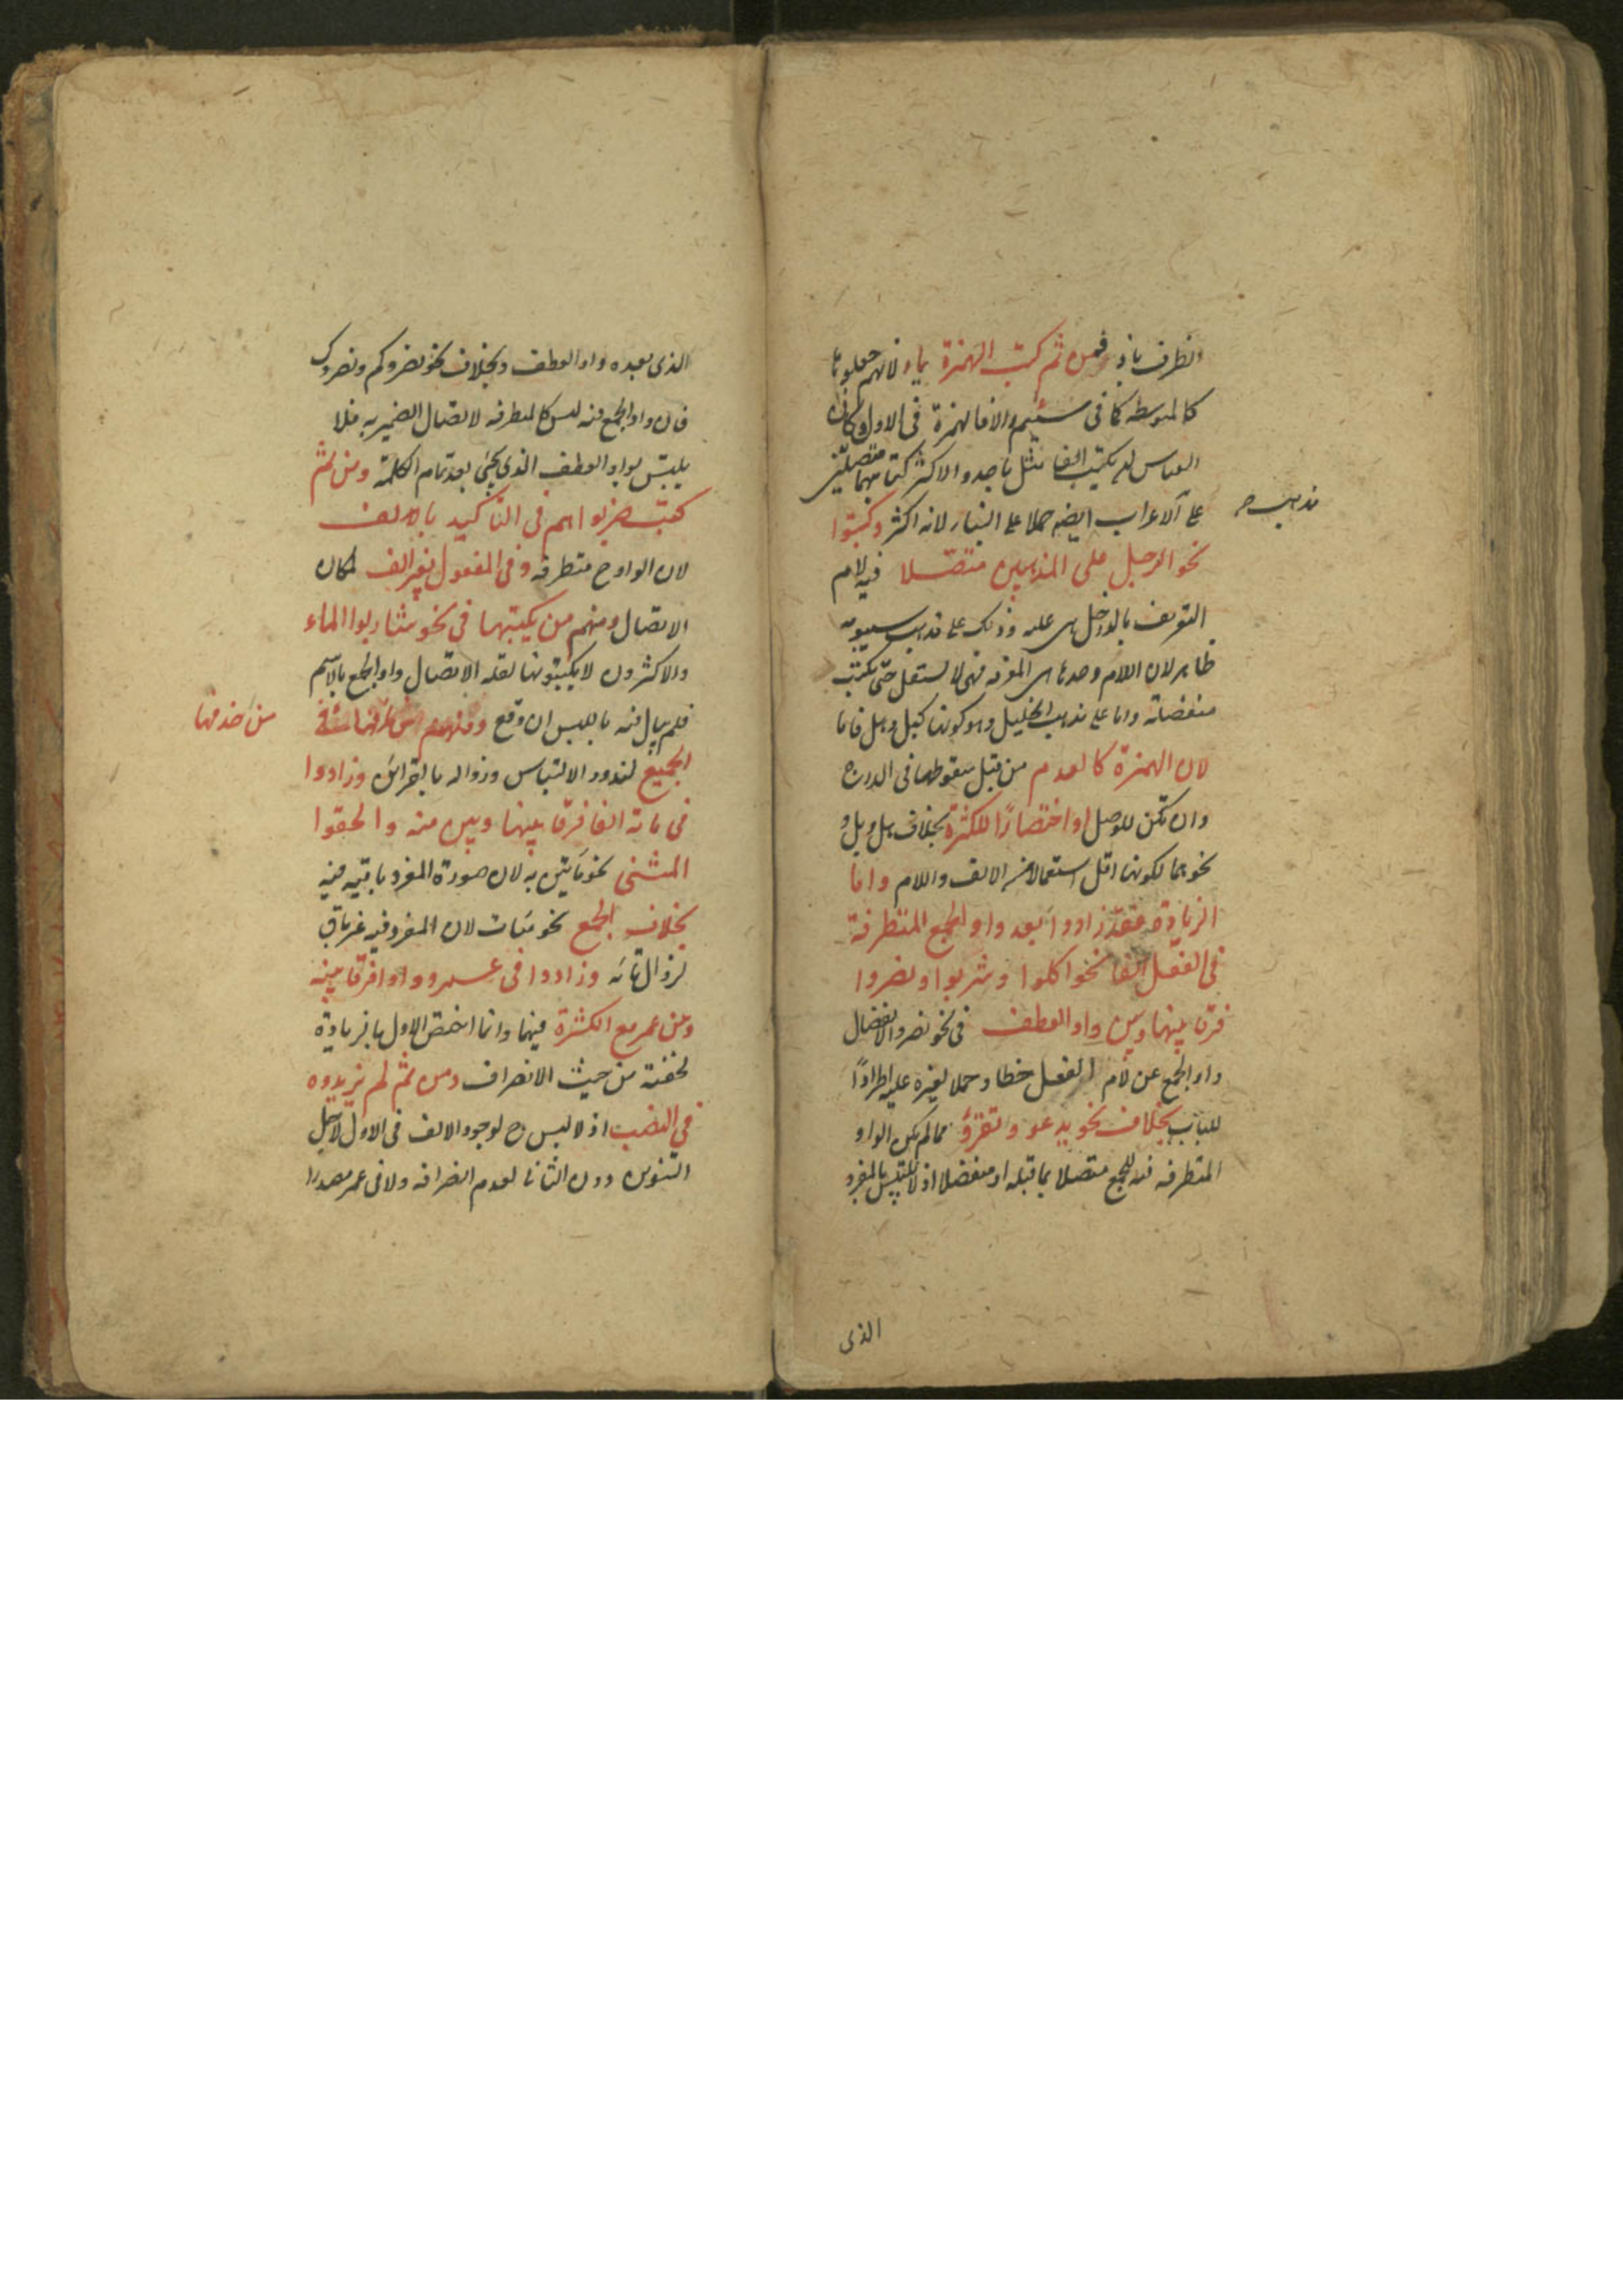 الظرف باذ فمن ثم كتب الهمزة ياء لانهم جعلوها
كالمتوسطة كما فى سئم والا فالهمزة فى الاول وكان
القياس ان يكتب الفا مثل باحد والاكثر كتابتهما متصلتين
على الاعراب ايضا حملا على البناء لانه اكثر وكتبوا
مذهب
نحو الرجل على المذهبين متصلا فيه لام
التعريف بالداخل هى عليه وذلك على مذهب سيبويه
ظاهر لان اللام وحدها هى المعرفه فهى لا تستقل حتى تكتب
منفصلة واما على مذهب الخليل وهو كونها كبل وهل فاما
لان الهمزة كالعدم من قبل سقوطها فى الدرج
وان تكن للوصل او اختصارًا للكثرة بخلاف هل وبل و
نحوهما لكونهما اقل استعمالا من الالف واللام واما
الزيادة فقد زادوا بعد واو الجمع المتطرفة
فى الفعل الفا نحو اكلوا وشربوا ونصروا
فرقا بينها وبين واو العطف فى نحو نصروا لانفصال
واو الجمع عن لام الفعل خطا وحملا لغيره عليه اطرادًا
للباب بخلاف نحو يدعو وتغزو مما لم يكن الواو
المتطرفه فيه للجمع متصلا بما قبله او منفصلا اذ لا يلتبس بالمفرد
الذى
الذى بعده واو العطف وبخلاف نحو نصروكم ونصروك
فان واو الجمع فيه ليس كالمتطرفه لاتصال الضمير به فلا
يلتبس بواو العطف الذى يجئ بعد تمام الكلمة ومن ثم
كتب ضربوا هم فى التأكيد بالالف
لان الواو ح متطرفه وفى المفعول بغير الف لمكان
الاتصال ومنهم من يكتبها فى نحو شاربوا الماء
والاكثرون لا يكتبونها لقلة الاتصال واو الجمع بالاسم
فلم يبال فيه باللبس ان وقع ومنهم من حذفها فى
من حذفها
الجميع لندور الالتباس وزواله بالقرائن وزادوا
فى مائة الفا فرقا بينها وبين منه والحقوا
المثنى نحو مأتين به لان صورة المفرد باقية فيه
بخلاف الجمع نحو مئات لان المفرد فيه غير باق
لزوال تائه وزادوا فى عمرو واوا فرقا بينه
وبين عمر مع الكثرة فيهما وانما اختص الاول بالزيادة
لخفته من حيث الانصراف ومن ثم لم يزيدوه
فى النصب اذ لا لبس ح لوجود الالف فى الاول لاجل
التنوين دون الثانى لعدم انصرافه ولا فى عمر مصدرا